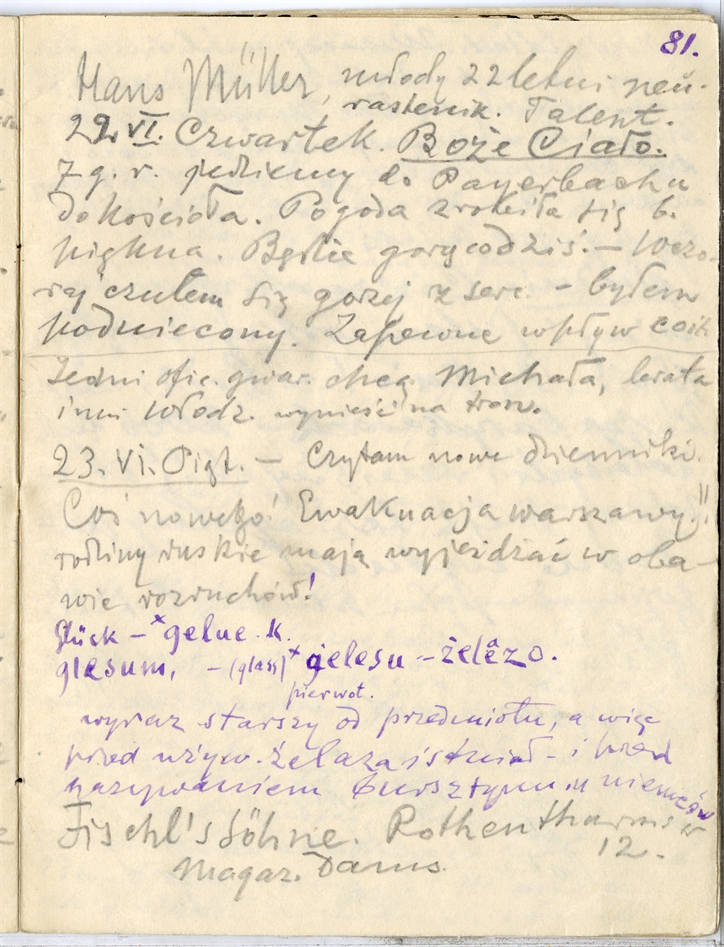 81.
Hans Müller, młody 22 letni neu-
rastenik. Talent.
22. VI. Czwartek. Boże Ciało.
7 g. r. jedziemy do Payerbachu
do kościoła. Pogoda zrobiła się b.
piękna. Będzie gorąco dziś. — Wczo-
raj czułem się gorzej z serc. – byłem
podniecony. Zapewne wpływ
Jedni ofic. gwar. chcą Michała, brata
inni Włodz. wynieść na tron.
23. VI. Piąt. — Czytam nowe dzienniki.
Coś nowego! Ewakuacja Warszawy!!
rodziny ruskie mają wyjeżdżać w oba-
wie rozruchów!
Glück – *gelue. k.
glesum, – (glass) *gelesu – želězo.
pierwot.
wyraz starszy od przedmiotu, a więc
przed używ. żelaza istniał – i przed
nazywaniem bursztynu u niemców
Fischl's Söhne. Rothenthurmstr
12.
Magaz. Dams.